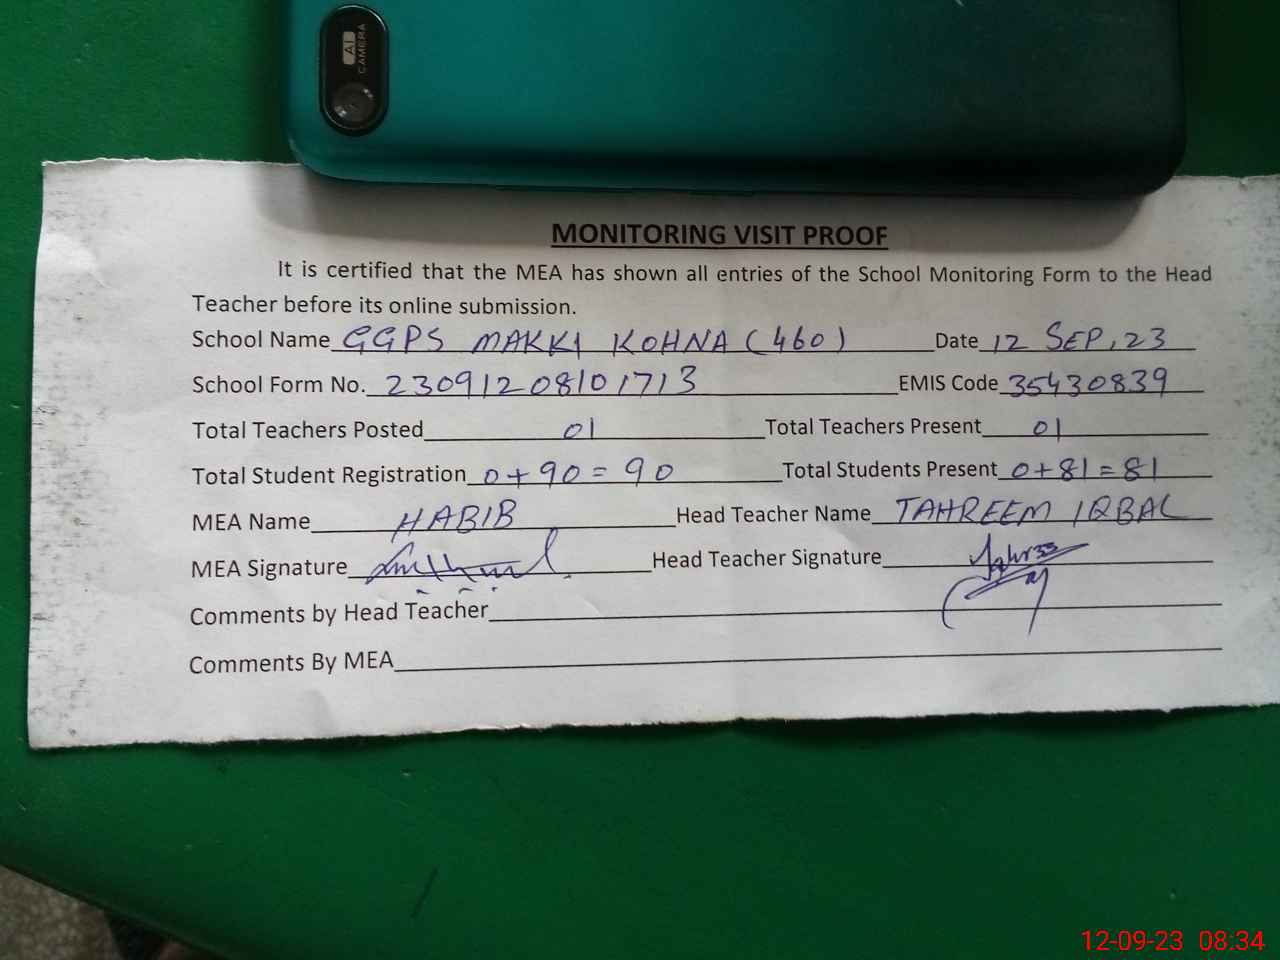 AI
CAMERA
MONITORING VISIT PROOF
It is certified that the MEA has shown all entries of the School Monitoring Form to the Head
Teacher before its online submission.
School Name GGPS MAKKI KOHNA (460) Date 12 SEP, 23
School Form No. 23091208101713 EMIS Code 35430839
Total Teachers Posted 01 Total Teachers Present 01
Total Student Registration 0+90=90 Total Students Present 0+81=81
MEA Name HABIB Head Teacher Name TAHREEM IQBAL
MEA Signature Head Teacher Signature
Comments by Head Teacher
Comments By MEA
12-09-23 08:34